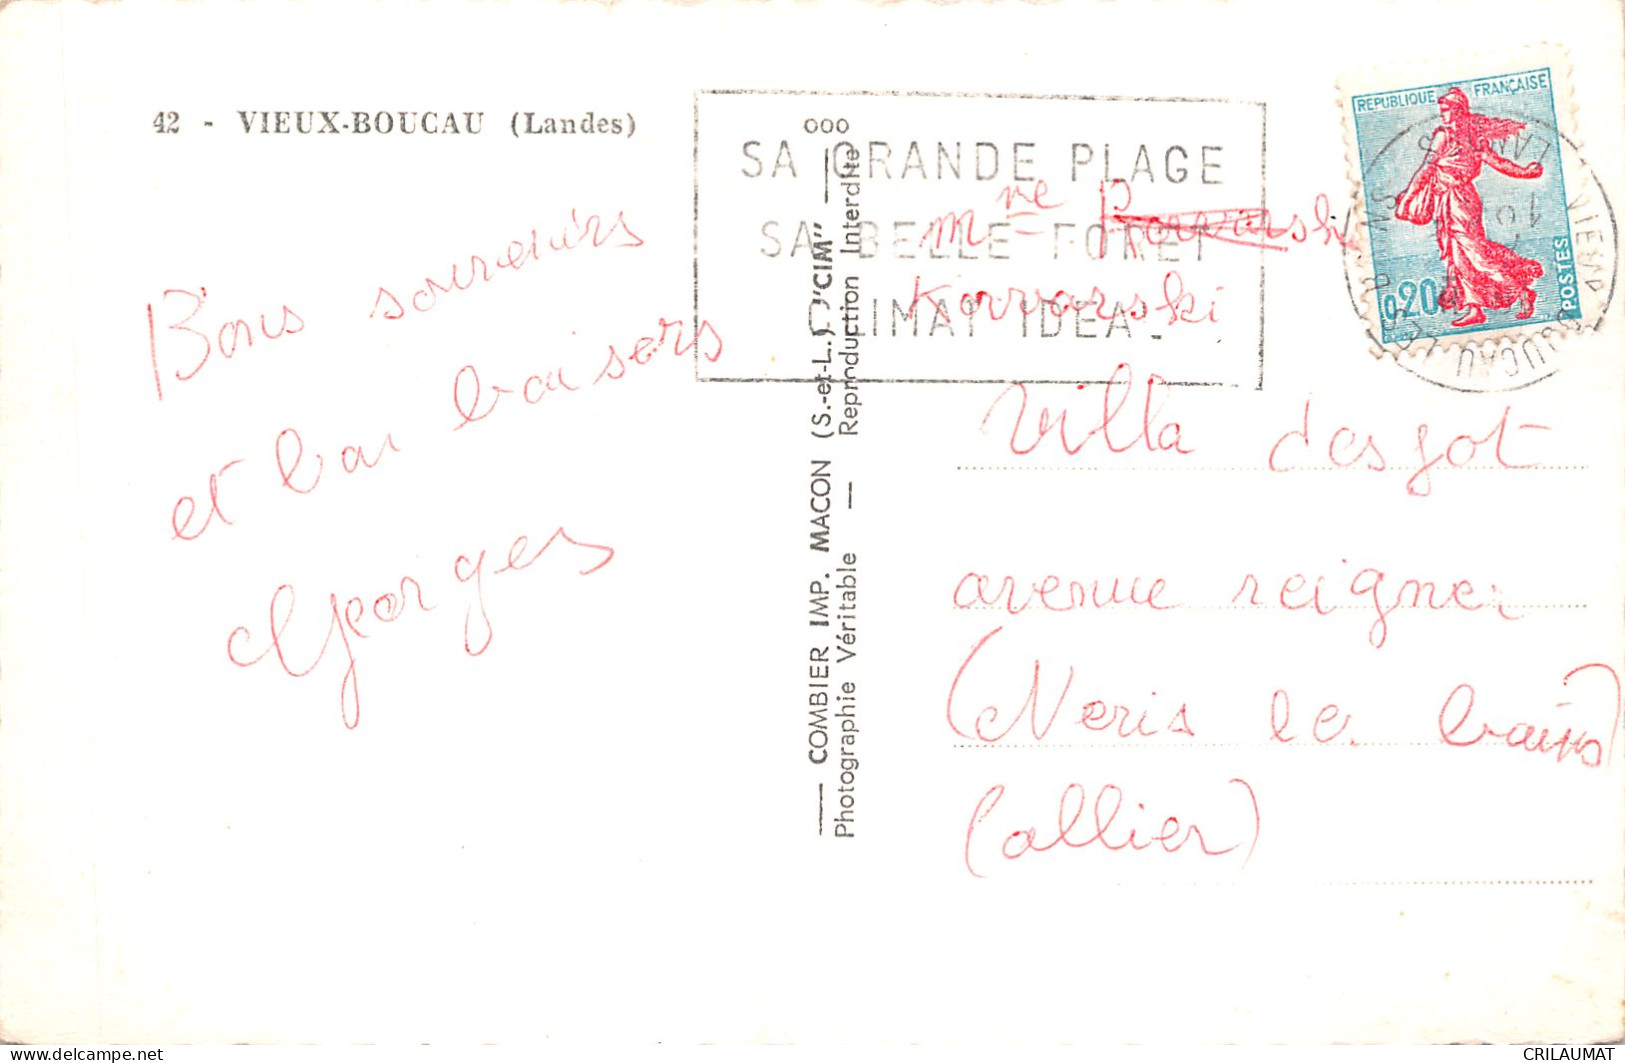 42 - VIEUX-BOUCAU (Landes)
Bons souvenirs
et bai baisers
Georges
COMBIER IMP. MACON (S.-et-L.) "CIM"
Photographie Véritable — Reproduction Interdite
SA GRANDE PLAGE
SA BELLE FORET
CLIMAT IDEAL
REPUBLIQUE FRANÇAISE
0,20
POSTES
VIEUX BOUCAU LES BAINS
LANDES
Mme
Kovvarski
Villa desjot
avenue reigner
(Neris les bains)
(allier)
delcampe.net
CRILAUMAT